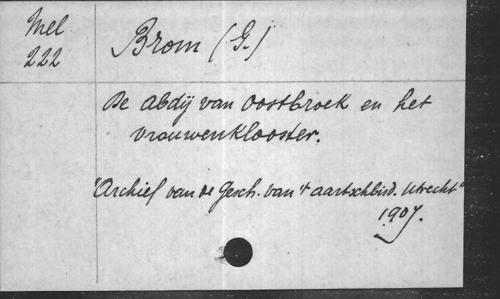 Mel
222
Brom (G.)
De abdij van Oostbroek en het
vrouwenklooster.
"Archief van de Gesch. van 't aartschbisd. Utrecht"
1907.